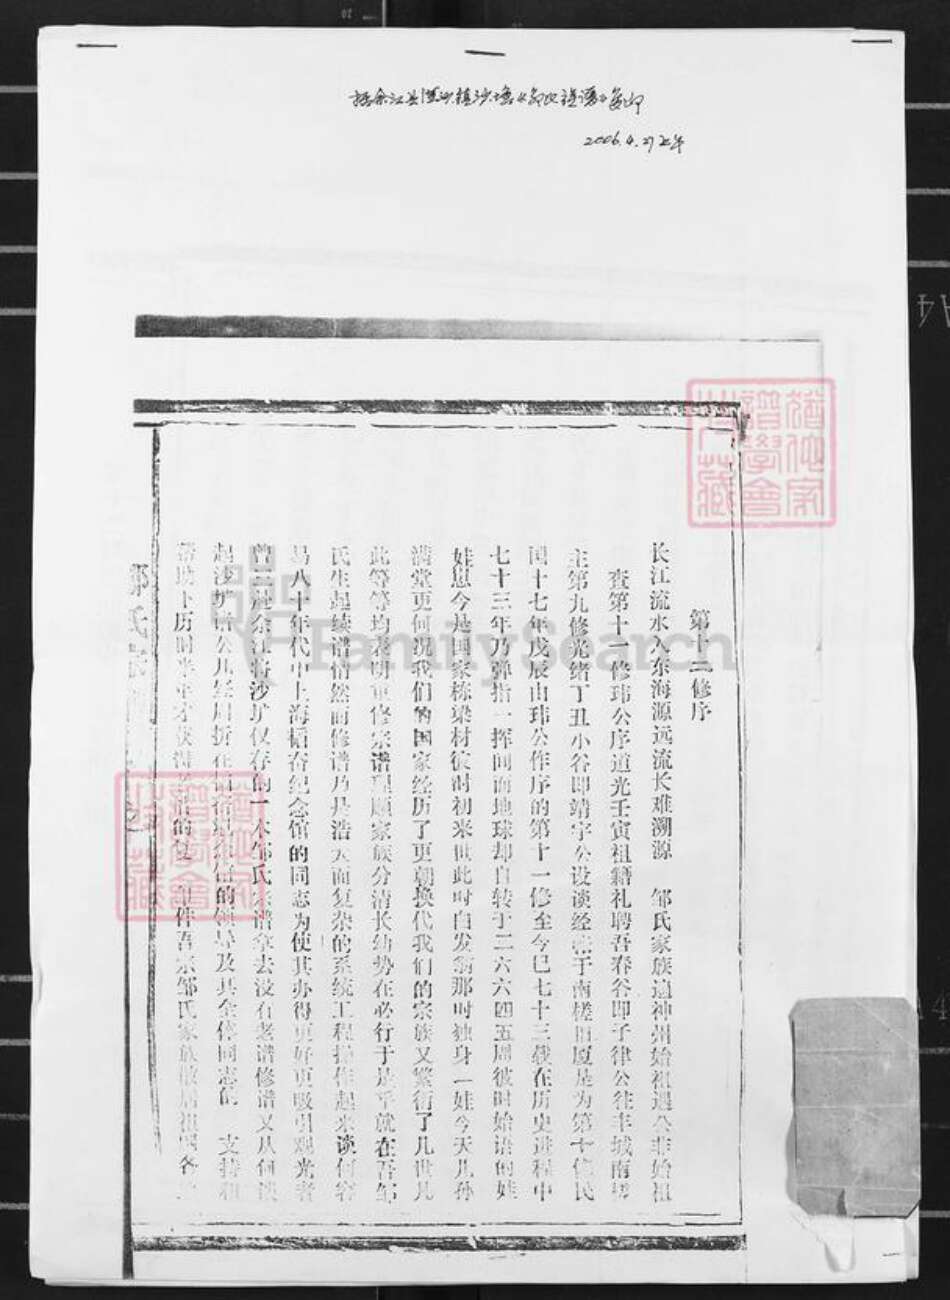 2006.4.27上午
第十二修序
长江流水入东海源远流长难溯源 邹氏家族遍神州始祖遇公非始祖
查第十一修玮公序道光壬寅祖籍礼聘吾春谷即子律公往丰城南
主第九修光绪丁丑小谷即靖宇公设谈经帐于南槎旧厦是为第十修民
国十七年戊辰由玮公作序的第十一修至今已七十三载在历史进程中
七十三年乃弹指一挥间而地球却自转于二六六四五周彼时始语的娃
娃思今是国家栋梁材彼时初来世此时白发翁那时独身一娃今天儿孙
满堂更何况我们的国家经历了更朝换代我们的宗族又繁衍了几世几
此等等均表明重修宗谱理顺家族分清长幼势在必行于是乎就在吾邹
氏生起续谱悄然而修谱乃是浩大而复杂的系统工程操作起来谈何容
易八十年代中上海韬奋纪念馆的同志为使其办得更好更吸引观光者
曾三赴余江将沙圹仅存的一本邹氏宗谱拿去没有老谱修谱又从何谈
起沙圹诸公几经周折在韬奋纪念馆的领导及其余倍同志的 支持和
帮助下历时来年才获得老谱的复 件吾宗邹氏家族散居祖国各
邹氏宗
FamilySearch